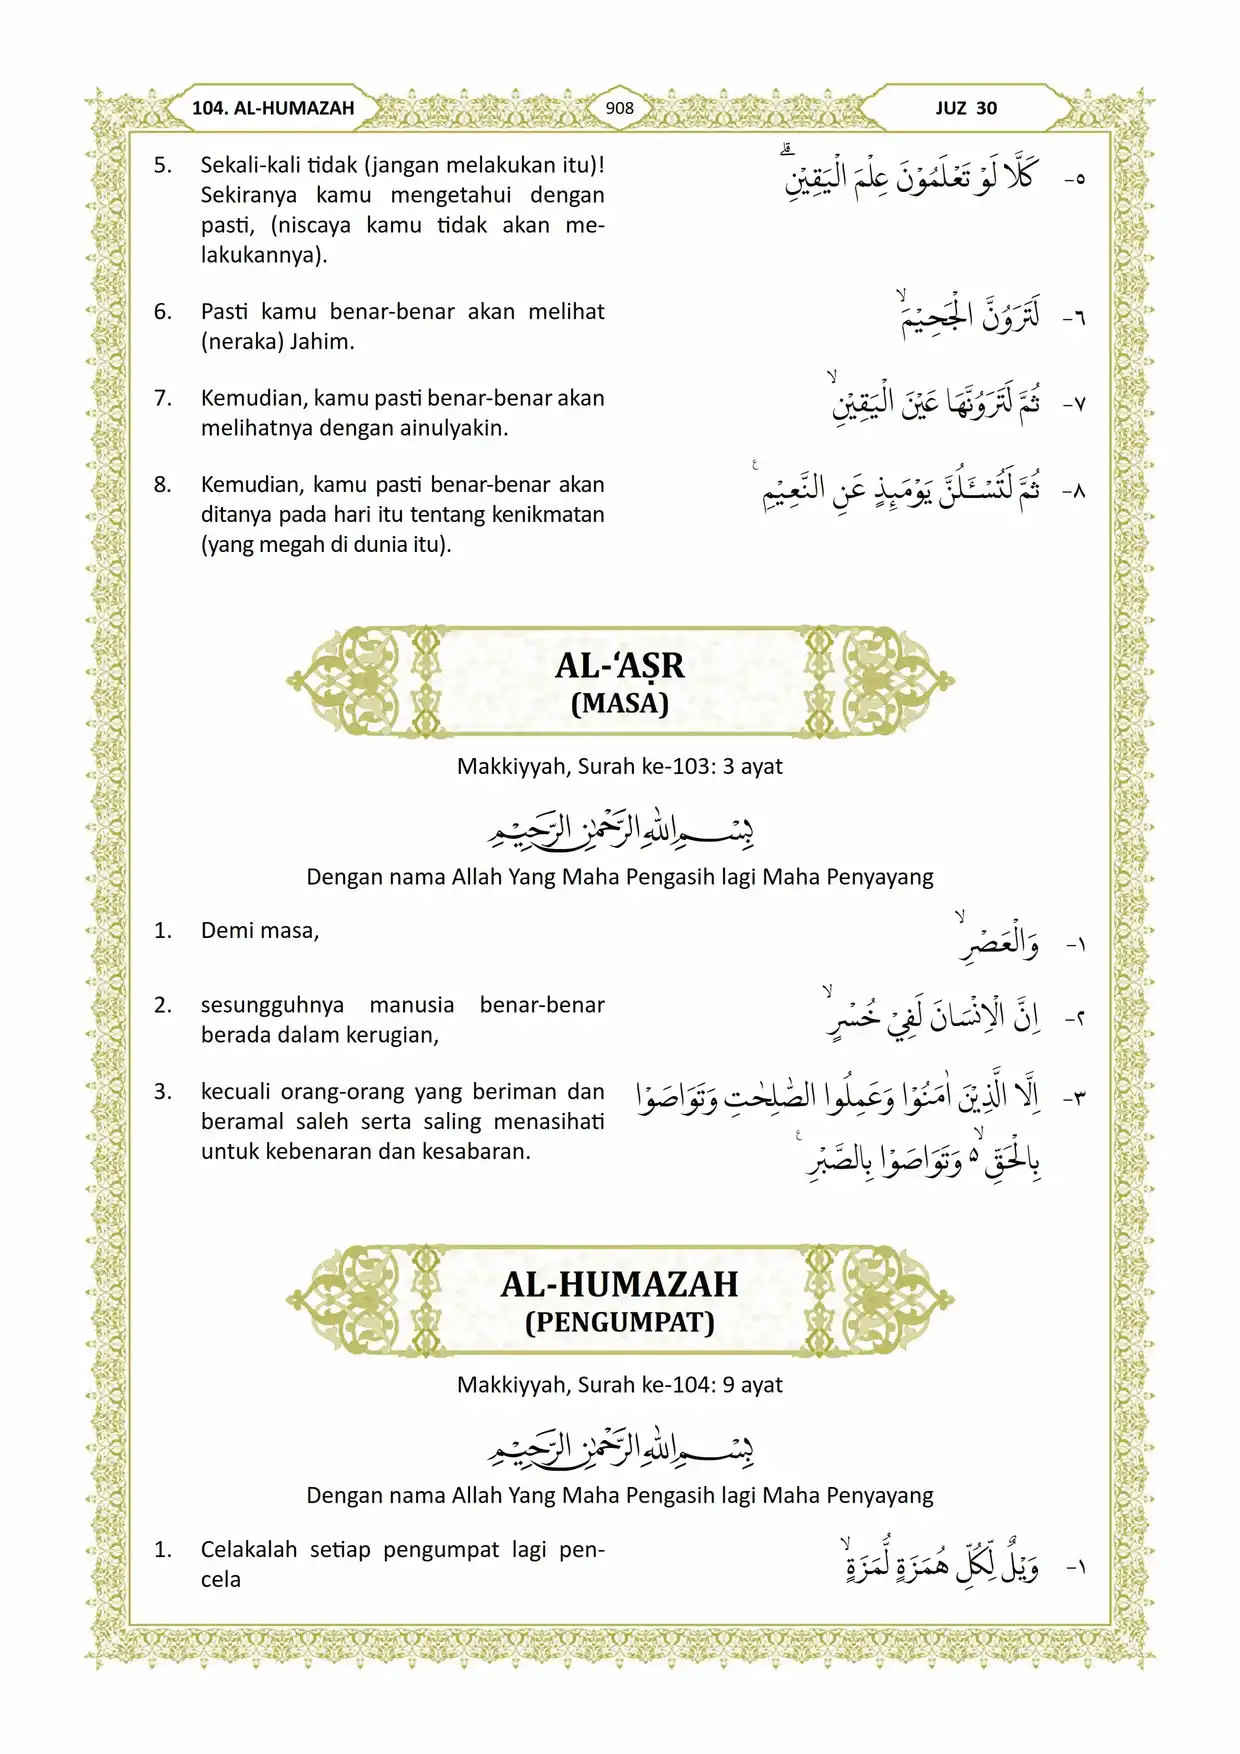 104. AL-HUMAZAH
908
JUZ 30
5. Sekali-kali tidak (jangan melakukan itu)!
Sekiranya kamu mengetahui dengan
pasti, (niscaya kamu tidak akan me-
lakukannya).
٥- كَلَّا لَوْ تَعْلَمُوْنَ عِلْمَ الْيَقِيْنِۗ
6. Pasti kamu benar-benar akan melihat
(neraka) Jahim.
٦- لَتَرَوُنَّ الْجَحِيْمَۙ
7. Kemudian, kamu pasti benar-benar akan
melihatnya dengan ainulyakin.
٧- ثُمَّ لَتَرَوُنَّهَا عَيْنَ الْيَقِيْنِۙ
8. Kemudian, kamu pasti benar-benar akan
ditanya pada hari itu tentang kenikmatan
(yang megah di dunia itu).
٨- ثُمَّ لَتُسْـَٔلُنَّ يَوْمَىِٕذٍ عَنِ النَّعِيْمِ ࣖ
AL-‘AṢR
(MASA)
Makkiyyah, Surah ke-103: 3 ayat
بِسْمِ اللّٰهِ الرَّحْمٰنِ الرَّحِيْمِ
Dengan nama Allah Yang Maha Pengasih lagi Maha Penyayang
1. Demi masa,
١- وَالْعَصْرِۙ
2. sesungguhnya manusia benar-benar
berada dalam kerugian,
٢- اِنَّ الْاِنْسَانَ لَفِيْ خُسْرٍۙ
3. kecuali orang-orang yang beriman dan
beramal saleh serta saling menasihati
untuk kebenaran dan kesabaran.
٣- اِلَّا الَّذِيْنَ اٰمَنُوْا وَعَمِلُوا الصّٰلِحٰتِ وَتَوَاصَوْا
بِالْحَقِّ ەۙ وَتَوَاصَوْا بِالصَّبْرِ ࣖ
AL-HUMAZAH
(PENGUMPAT)
Makkiyyah, Surah ke-104: 9 ayat
بِسْمِ اللّٰهِ الرَّحْمٰنِ الرَّحِيْمِ
Dengan nama Allah Yang Maha Pengasih lagi Maha Penyayang
1. Celakalah setiap pengumpat lagi pen-
cela
١- وَيْلٌ لِّكُلِّ هُمَزَةٍ لُّمَزَةٍۙ